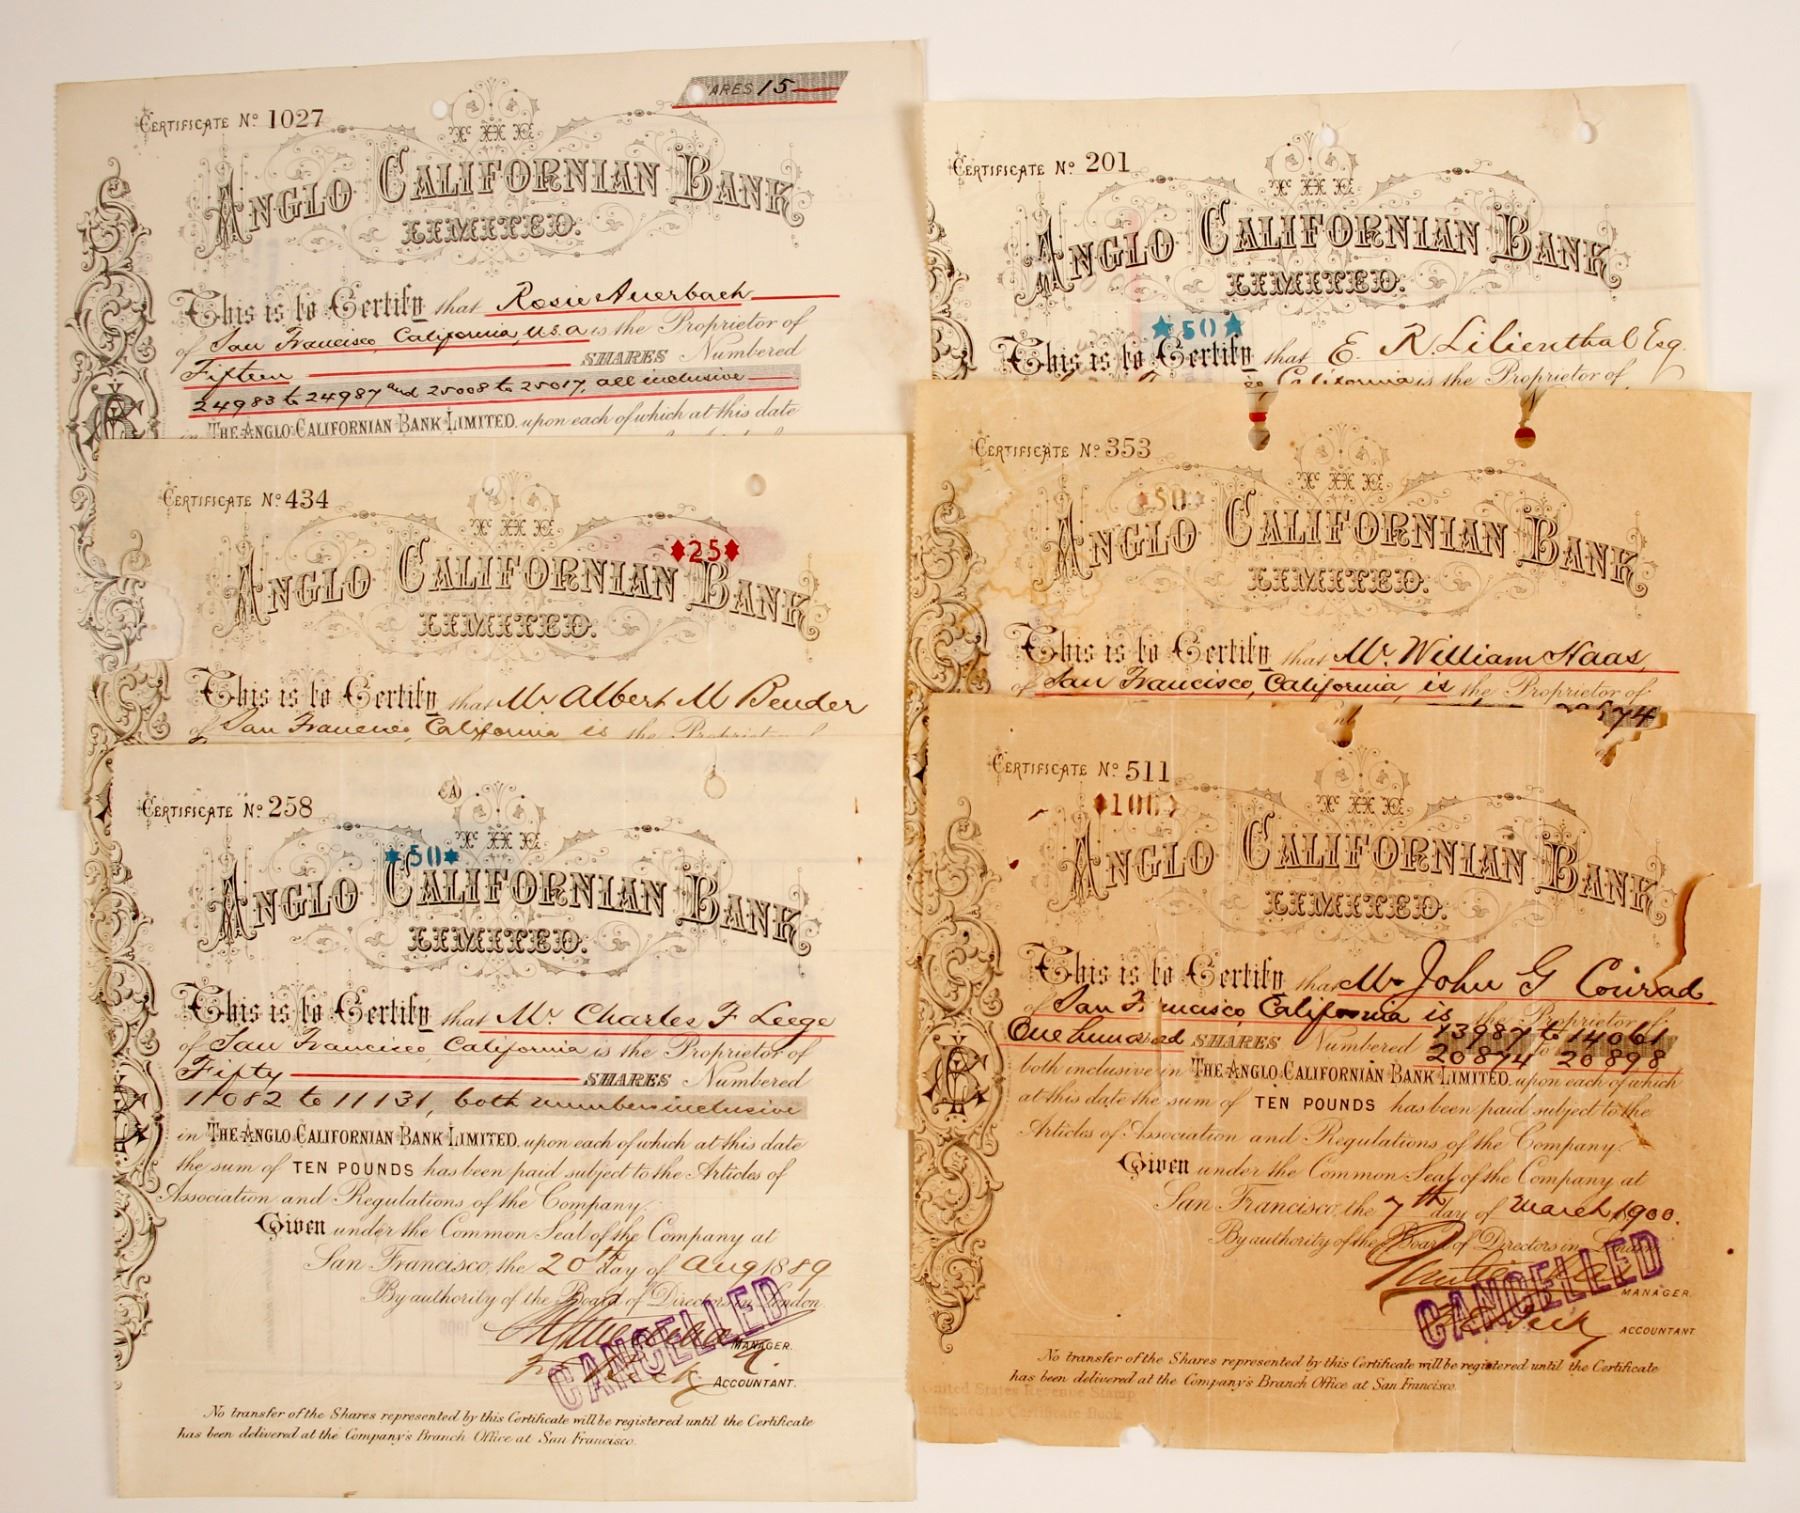 CERTIFICATE No. 1027
ARES 15
THE
ANGLO CALIFORNIAN BANK
LIMITED.
This is to Certify that Rosie Auerbach
of San Francisco, California, U.S.A is the Proprietor of
Fifteen SHARES Numbered
24983 to 24987 and 25008 to 25017, all inclusive
in THE ANGLO CALIFORNIAN BANK LIMITED, upon each of which at this date
CERTIFICATE No. 434
THE
25
ANGLO CALIFORNIAN BANK
LIMITED.
This is to Certify that Mr Albert M Bender
of San Francisco, California is the
CERTIFICATE No. 258
THE
50
ANGLO CALIFORNIAN BANK
LIMITED.
This is to Certify that Mr. Charles F Leege
of San Francisco California is the Proprietor of
Fifty SHARES Numbered
11082 to 11131, both numbers inclusive
in THE ANGLO CALIFORNIAN BANK LIMITED, upon each of which at this date
the sum of TEN POUNDS has been paid subject to the Articles of
Association and Regulations of the Company.
Given under the Common Seal of the Company at
San Francisco, the 20th day of Aug 1889
By authority of the Board of Directors in London
MANAGER.
CANCELLED
ACCOUNTANT.
No transfer of the Shares represented by this Certificate will be registered until the Certificate
has been delivered at the Company's Branch Office at San Francisco.
CERTIFICATE No. 201
THE
ANGLO CALIFORNIAN BANK
LIMITED.
50
This is to Certify that E. R. Lilienthal Esq.
California is the Proprietor of
CERTIFICATE No. 353
THE
50
ANGLO CALIFORNIAN BANK
LIMITED.
This is to Certify that Mr. William Haas,
of San Francisco, California, is the Proprietor of
74
CERTIFICATE No. 511
THE
100
ANGLO CALIFORNIAN BANK
LIMITED.
This is to Certify that Mr John G Conrad
of San Francisco, California is the Proprietor of
One hundred SHARES Numbered 13987 to 14061
20874 to 20898
both inclusive in THE ANGLO CALIFORNIAN BANK LIMITED, upon each of which
at this date the sum of TEN POUNDS has been paid subject to the
Articles of Association and Regulations of the Company.
Given under the Common Seal of the Company at
San Francisco, the 7th day of March 1900.
By authority of the Board of Directors in London
MANAGER.
CANCELLED
ACCOUNTANT.
No transfer of the Shares represented by this Certificate will be registered until the Certificate
has been delivered at the Company's Branch Office at San Francisco.
United States Revenue Stamp
Certificate Book